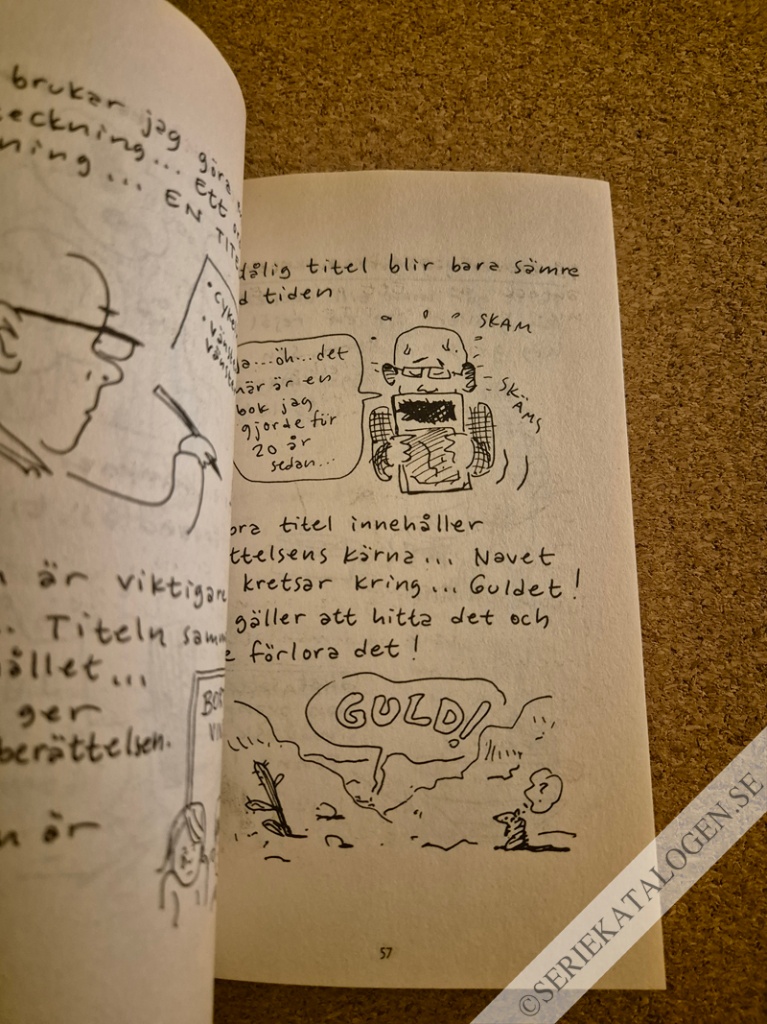 brukar jag göra
eckning... Ett
ning... EN TITE
• cyke
är viktigare
Titeln samm
ållet...
ger
berättelsen.
är
dålig titel blir bara sämre
d tiden
SKAM
SKÄMS
ja...öh...det
här är en
bok jag
gjorde för
20 år
sedan...
ora titel innehåller
ttelsens kärna... Navet
kretsar kring... Guldet!
gäller att hitta det och
e förlora det!
GULD!
?
57
©SERIEKATALOGEN.SE